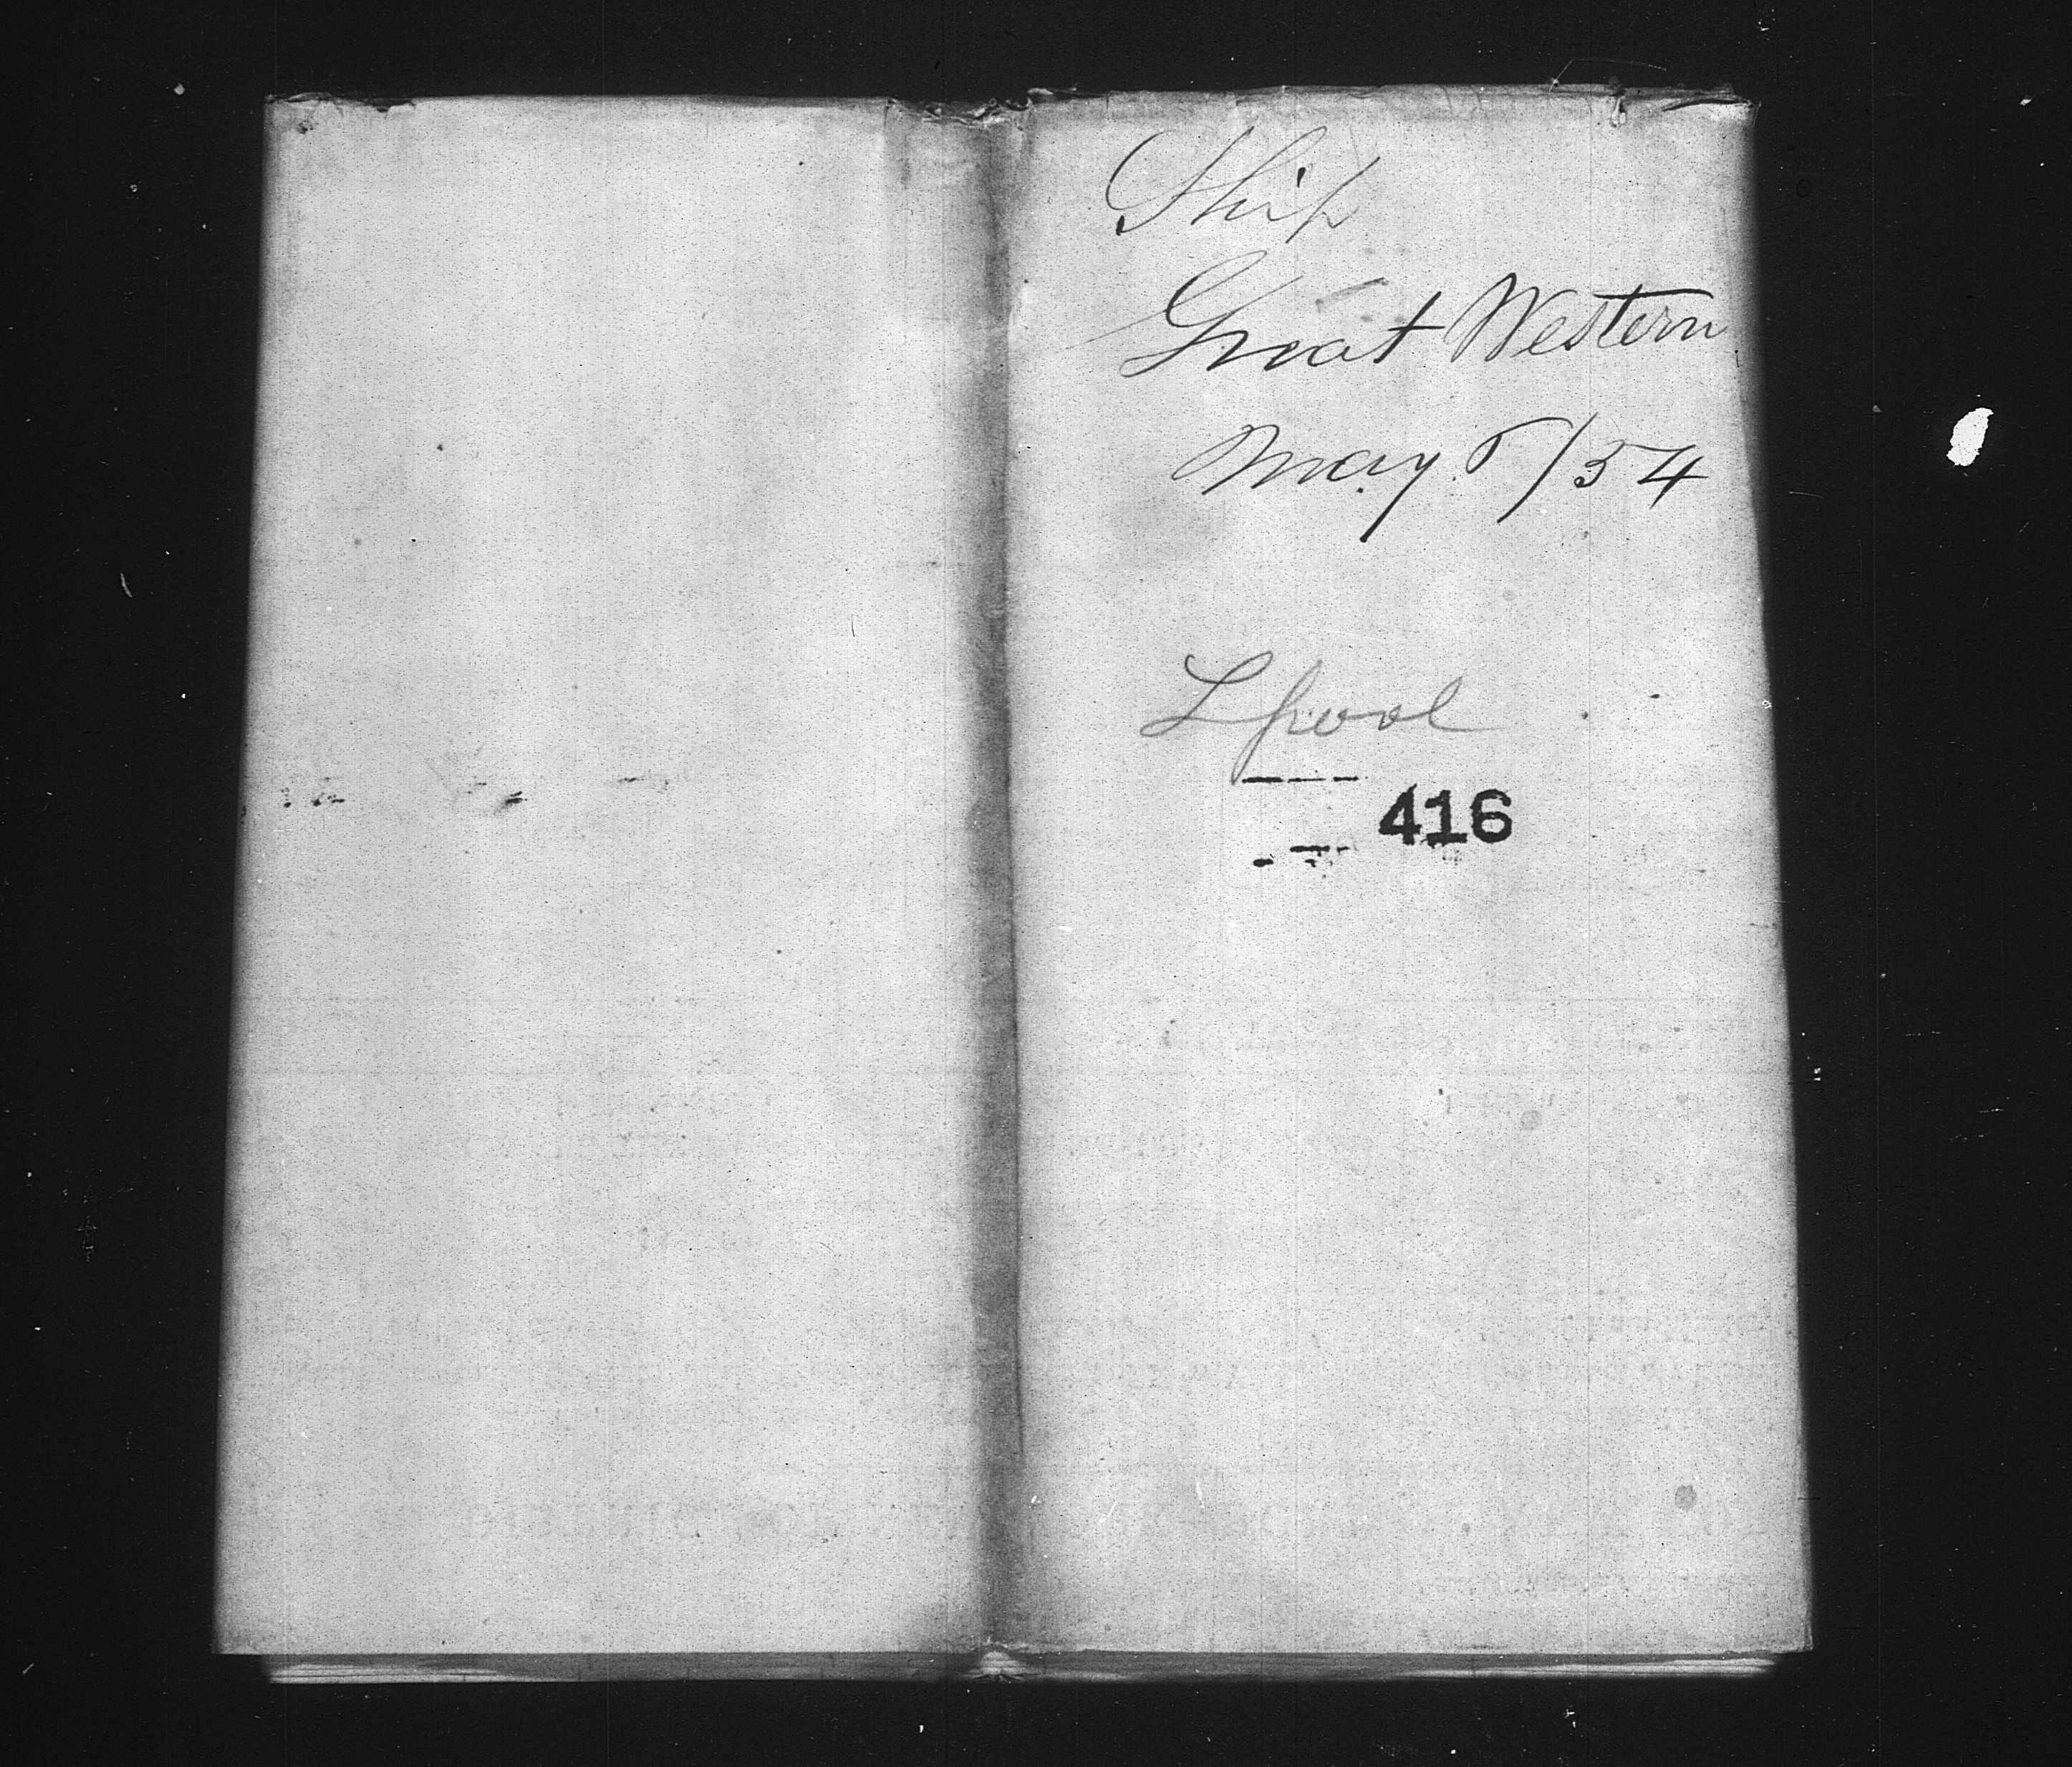 Ship
Great Western
May 5/54
Lpool
416